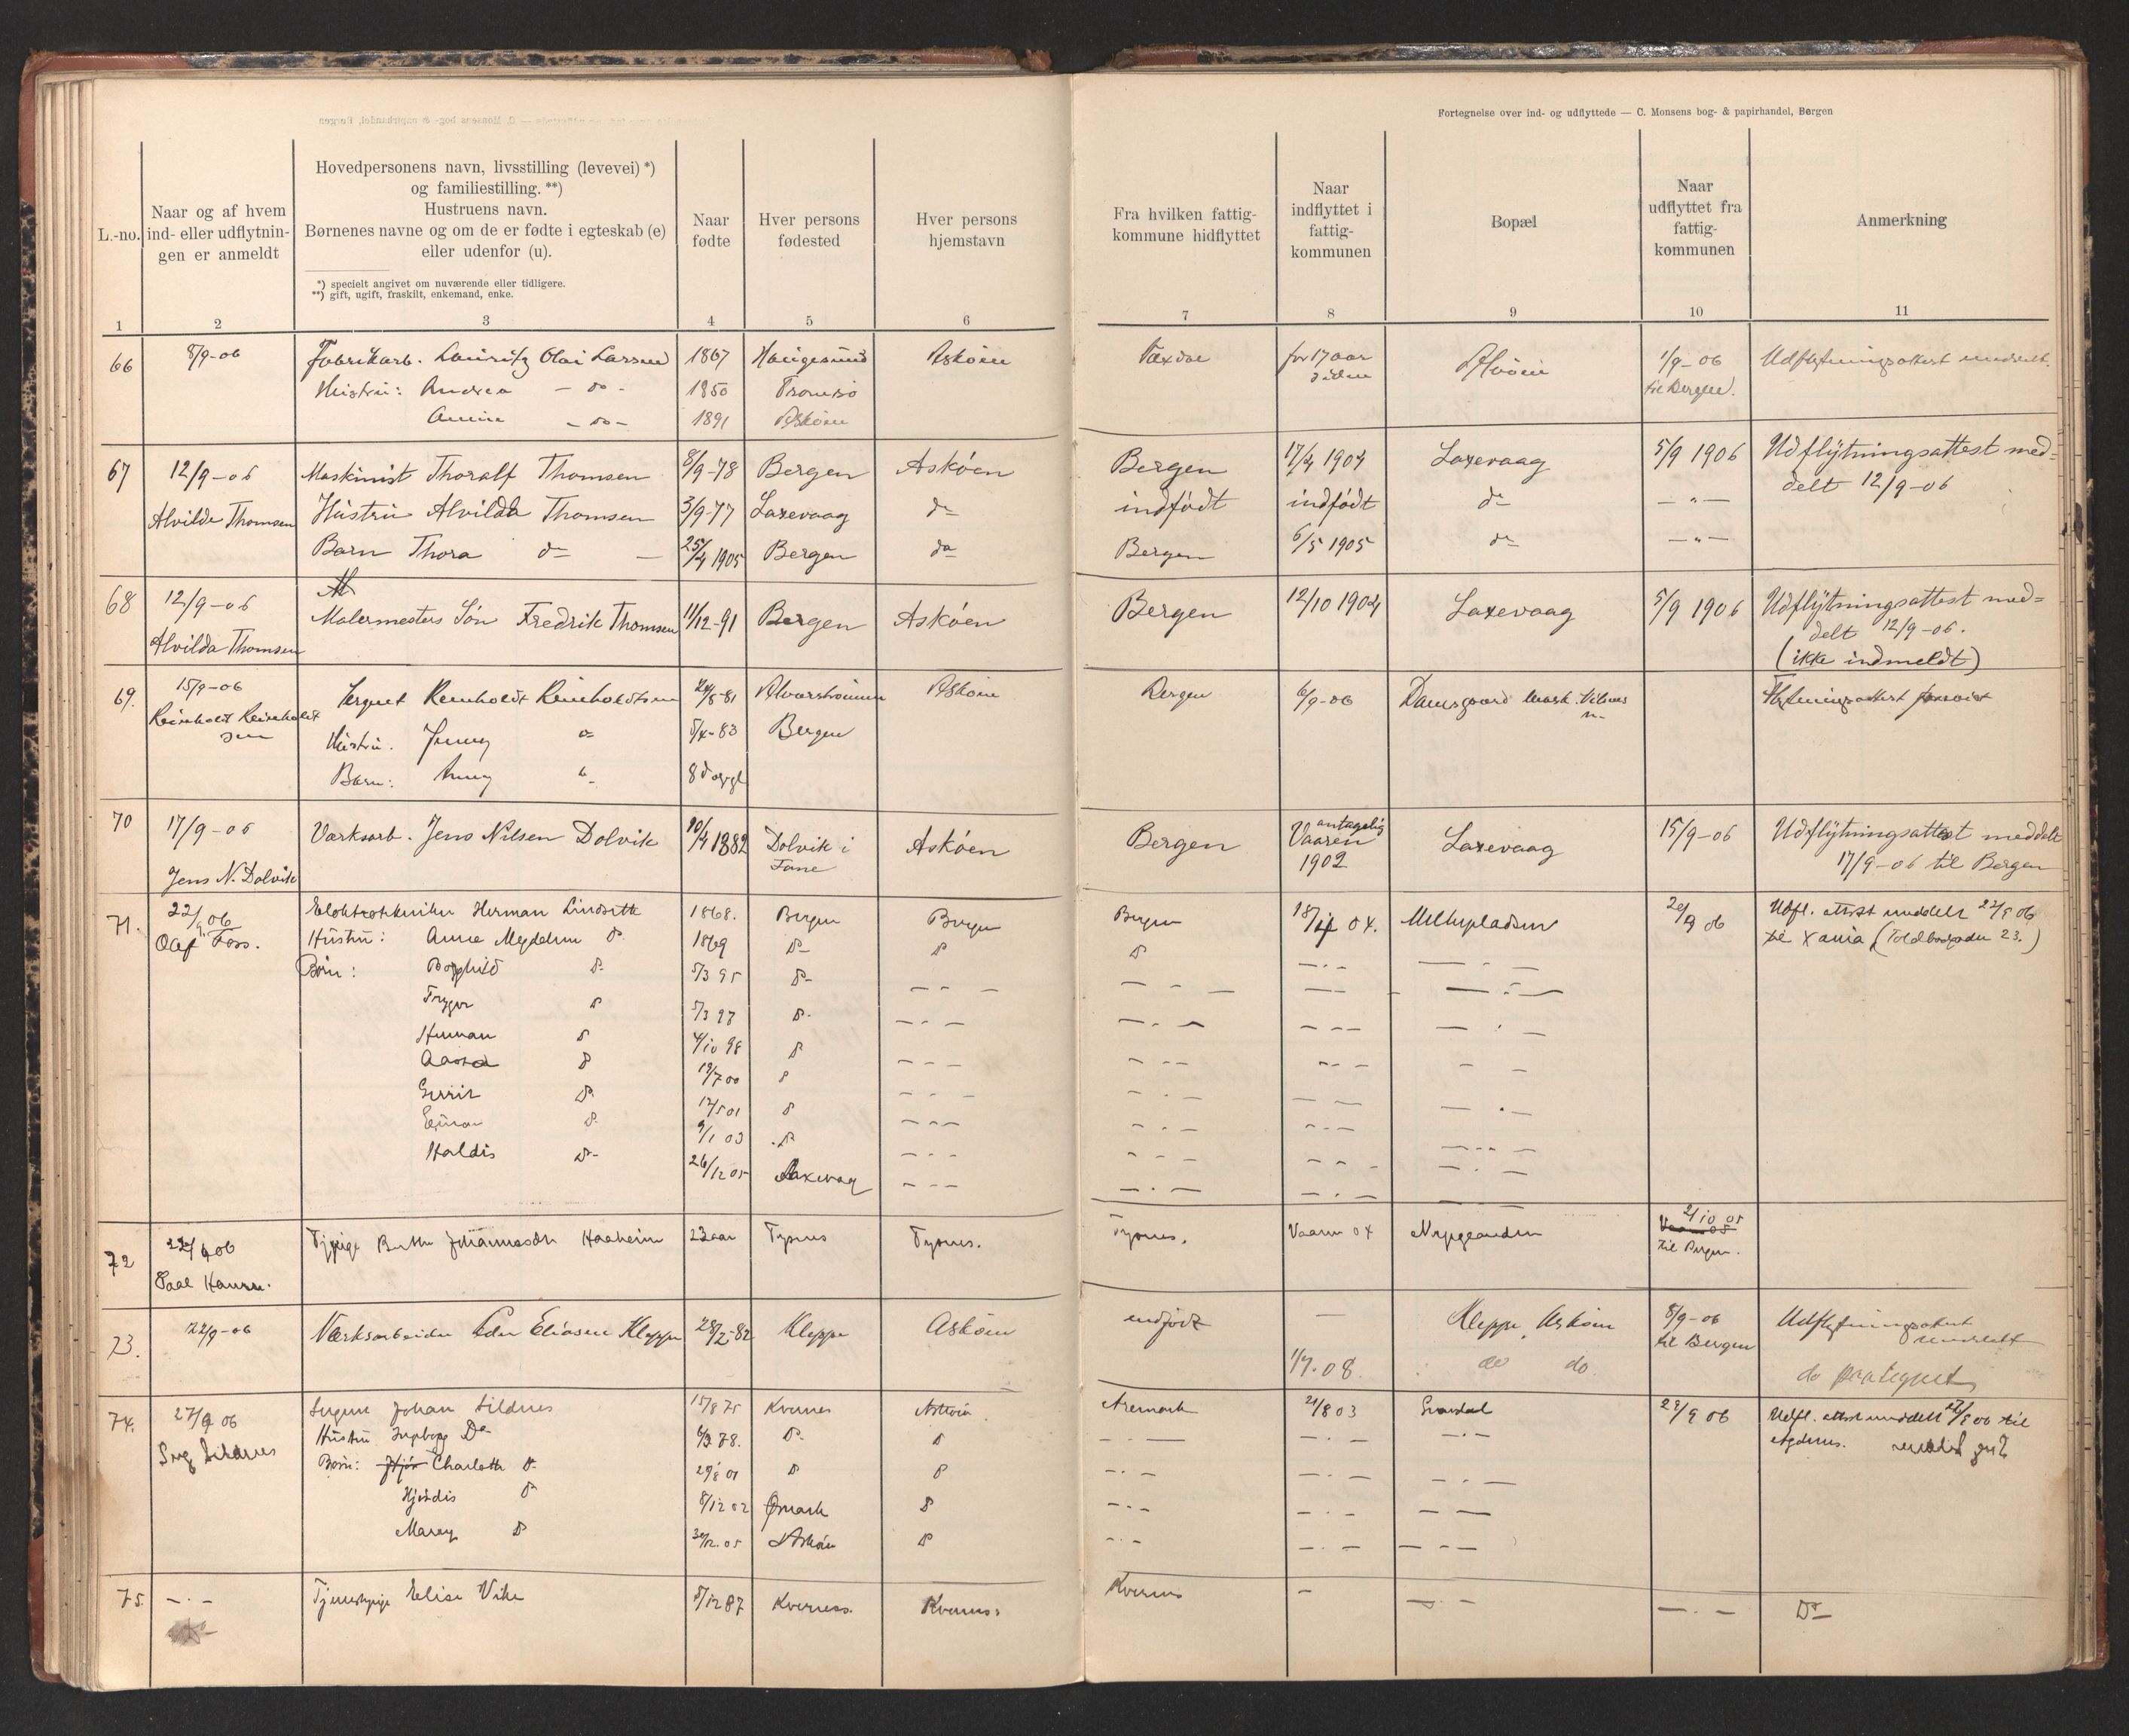 Fortegnelse over ind- og udflyttede — C. Monsens bog- & papirhandel, Bergen
L.-no.
Naar og af hvem
ind- eller udflytnin-
gen er anmeldt
Hovedpersonens navn, livsstilling (levevei) *)
og familiestilling. **)
Hustruens navn.
Børnenes navne og om de er fødte i egteskab (e)
eller udenfor (u).
*) specielt angivet om nuværende eller tidligere.
**) gift, ugift, fraskilt, enkemand, enke.
Naar
fødte
Hver persons
fødested
Hver persons
hjemstavn
Fra hvilken fattig-
kommune hidflyttet
Naar
indflyttet i
fattig-
kommunen
Bopæl
Naar
udflyttet fra
fattig-
kommunen
Anmerkning
1 2 3 4 5 6 7 8 9 10 11
66 8/9-06 Fabrikarb. Lauritz Olai Larsen 1867 Haugesund Askøen for 17 aar siden Alvøen 1/9-06 til Bergen. Udflytningsattest meddelt.
Hustru: Andrea - do - 1850 Tromsø
- do - 1891 Askøen
67 12/9-06 Maskinist Thoralf Thomsen 8/9-78 Bergen Askøen Bergen 17/4 1904 Laxevaag 5/9 1906 Udflytningsattest med=
delt 12/9-06
Alvilde Thomsen Hustru Alvilda Thomsen 3/9-77 Laxevaag do indfødt indfødt do — " —
Barn Thora do — 25/4 1905 Bergen do Bergen 6/5 1905 do — " —
68 12/9-06 Malermesters Søn Fredrik Thomsen 11/12-91 Bergen Askøen Bergen 12/10 1904 Laxevaag 5/9 1906 Udflytningsattest med=
delt 12/9-06.
Alvilda Thomsen (ikke indmeldt)
69. 15/9-06 Reinholdt Reinholdtsen Alversstrømmen Askøen Bergen 6/9-06 Damsgaard
Reinholdt Reinholdt
sen
Hustru. Jenny do 5/4-83 Bergen
Barn: 8 dage gl
70 17/9-06 Værksarb. Jens Nilsen Dolvik 10/4 1882 Dolvik i Fane Askøen Bergen antagelig Vaaren 1902 Laxevaag 15/9-06 Udflytningsattest meddelt
17/9-06 til Bergen
Jens N. Dolvik
71. 22/9 06 Elektrotekniker Herman Lindseth 1868. Bergen Bergen Bergen 18/4 04. Møllepladsen 20/9 06 Udfl. attest meddelt 22/9 06
til Xania (Toldbodgaden 23.)
Olaf Foss. Hustru: Anna Magdalene do 1869 do do do
Børn: Borghild do 5/3 95 do
Trygve do 5/3 97 do
Herman do 4/10 98 do
Aasta do 19/7 00 do
do 12/5 01 do
Einar do 9/1 03 do
Haldis do 26/12 05 Laxevaag
72 22/9 06 Tjpige Berthe Johannesdtr Haaheim 23 aar Tysnes Tysnes. Tysnes. Vaaren 04 Nygaarden 2/10 05 til Bergen.
Paal Hansen.
73. 22/9-06 Værksarbeider Peder Eliasen Kleppe 28/2-82 Kleppe Askøen indfødt — Kleppe, Askøen 8/9-06 til Bergen Udflytningsattest meddelt
1/7.08. do do. do paategnet
74. 27/9 06 Johan Sildnes 15/8 75 Kvernes Askøen Aremark 21/8 03 Gravdal 28/9 06 Udfl. attest meddelt 27/9 06 til
Agdenes.
Sildnes Hustru Ingeborg Do 6/3 78. do do
Børn: Charlotte do 29/8 01 do do
Hjørdis do 8/12 02 Ømark do
Maray do 30/12.05 Askøen do
75. — . — Tjenestepige Elise Vike 5/12 87 Kverness. Kvernes. Kvernes — — . — — . — Do